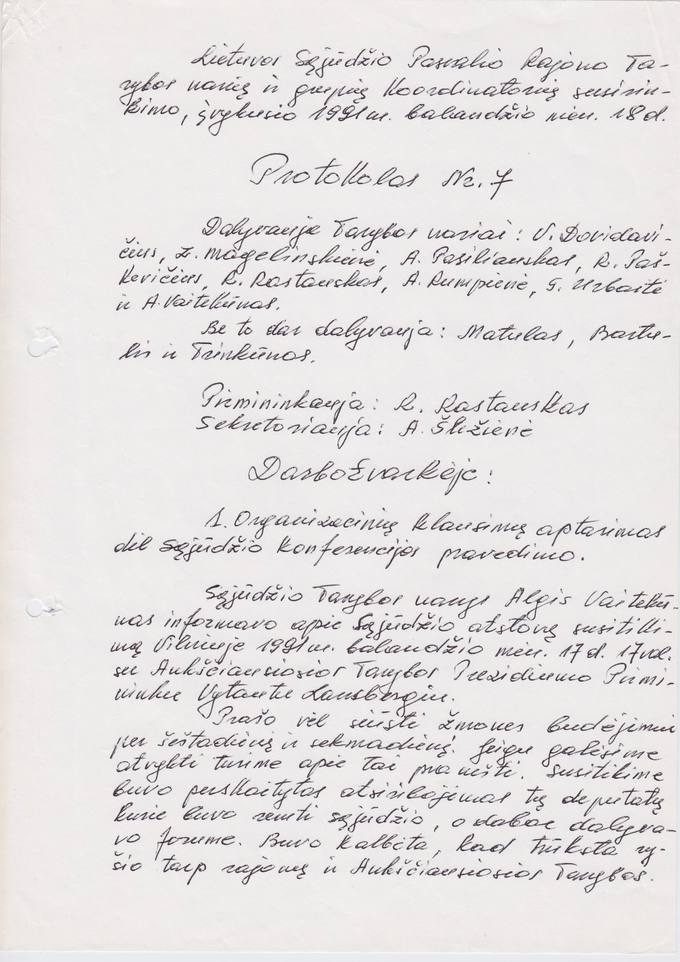 Lietuvos Sąjūdžio Pasvalio Rajono Ta-
rybos narių ir grupių Koordinatorių susirin-
kimo, įvykusio 1991 m. balandžio mėn. 18 d.
Protokolas Nr. 7
Dalyvauja Tarybos nariai: V. Dovidavi-
čius, Z. Magelinskienė, A. Pasiliauskas, R. Paš-
kevičius, R. Rastauskas, A. Rumpienė, G. Urbaitė
ir A. Vaitekūnas.
Be to dar dalyvauja: Matulas, Bartu-
lis ir Trinkūnas.
Pirmininkauja: R. Rastauskas
Sekretoriauja: A. Šležienė
Darbotvarkėje:
1. Organizacinių klausimų aptarimas
dėl Sąjūdžio Konferencijos pravedimo.
Sąjūdžio Tarybos narys Algis Vaitekū-
nas informavo apie Sąjūdžio atstovų susitiki-
mą Vilniuje 1991 m. balandžio mėn. 17 d. 17 val.
su Aukščiausiosios Tarybos Prezidiumo Pirmi-
ninku Vytautu Lansbergiu.
Prašo vėl siųsti žmones budėjimui
per šeštadienį ir sekmadienį. Jeigu galėsime
atvykti turime apie tai pranešti. Susitikime
buvo perskaitytas atsišaukimas tų deputatų
kurie buvo remti Sąjūdžio, o dabar dalyva-
vo forume. Buvo kalbėta, kad trūksta ry-
šio tarp rajonų ir Aukščiausiosios Tarybos.